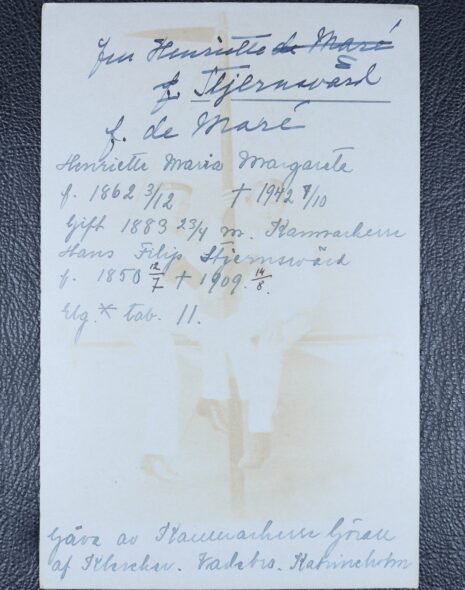 Fru Henriette de Maré
f. Stjernsvärd
f. de Maré
Henriette Maria Margareta
f. 1862 3/12 † 1942 8/10
Gift 1883 23/4 m. Kammarherre
Hans Filip Stjernswärd
f. 1850 12/7 † 1909. 14/8.
Elg.* tab. 11.
Gåva av Kammarherre Göran
af Klercker. Vadsbro. Katrineholm